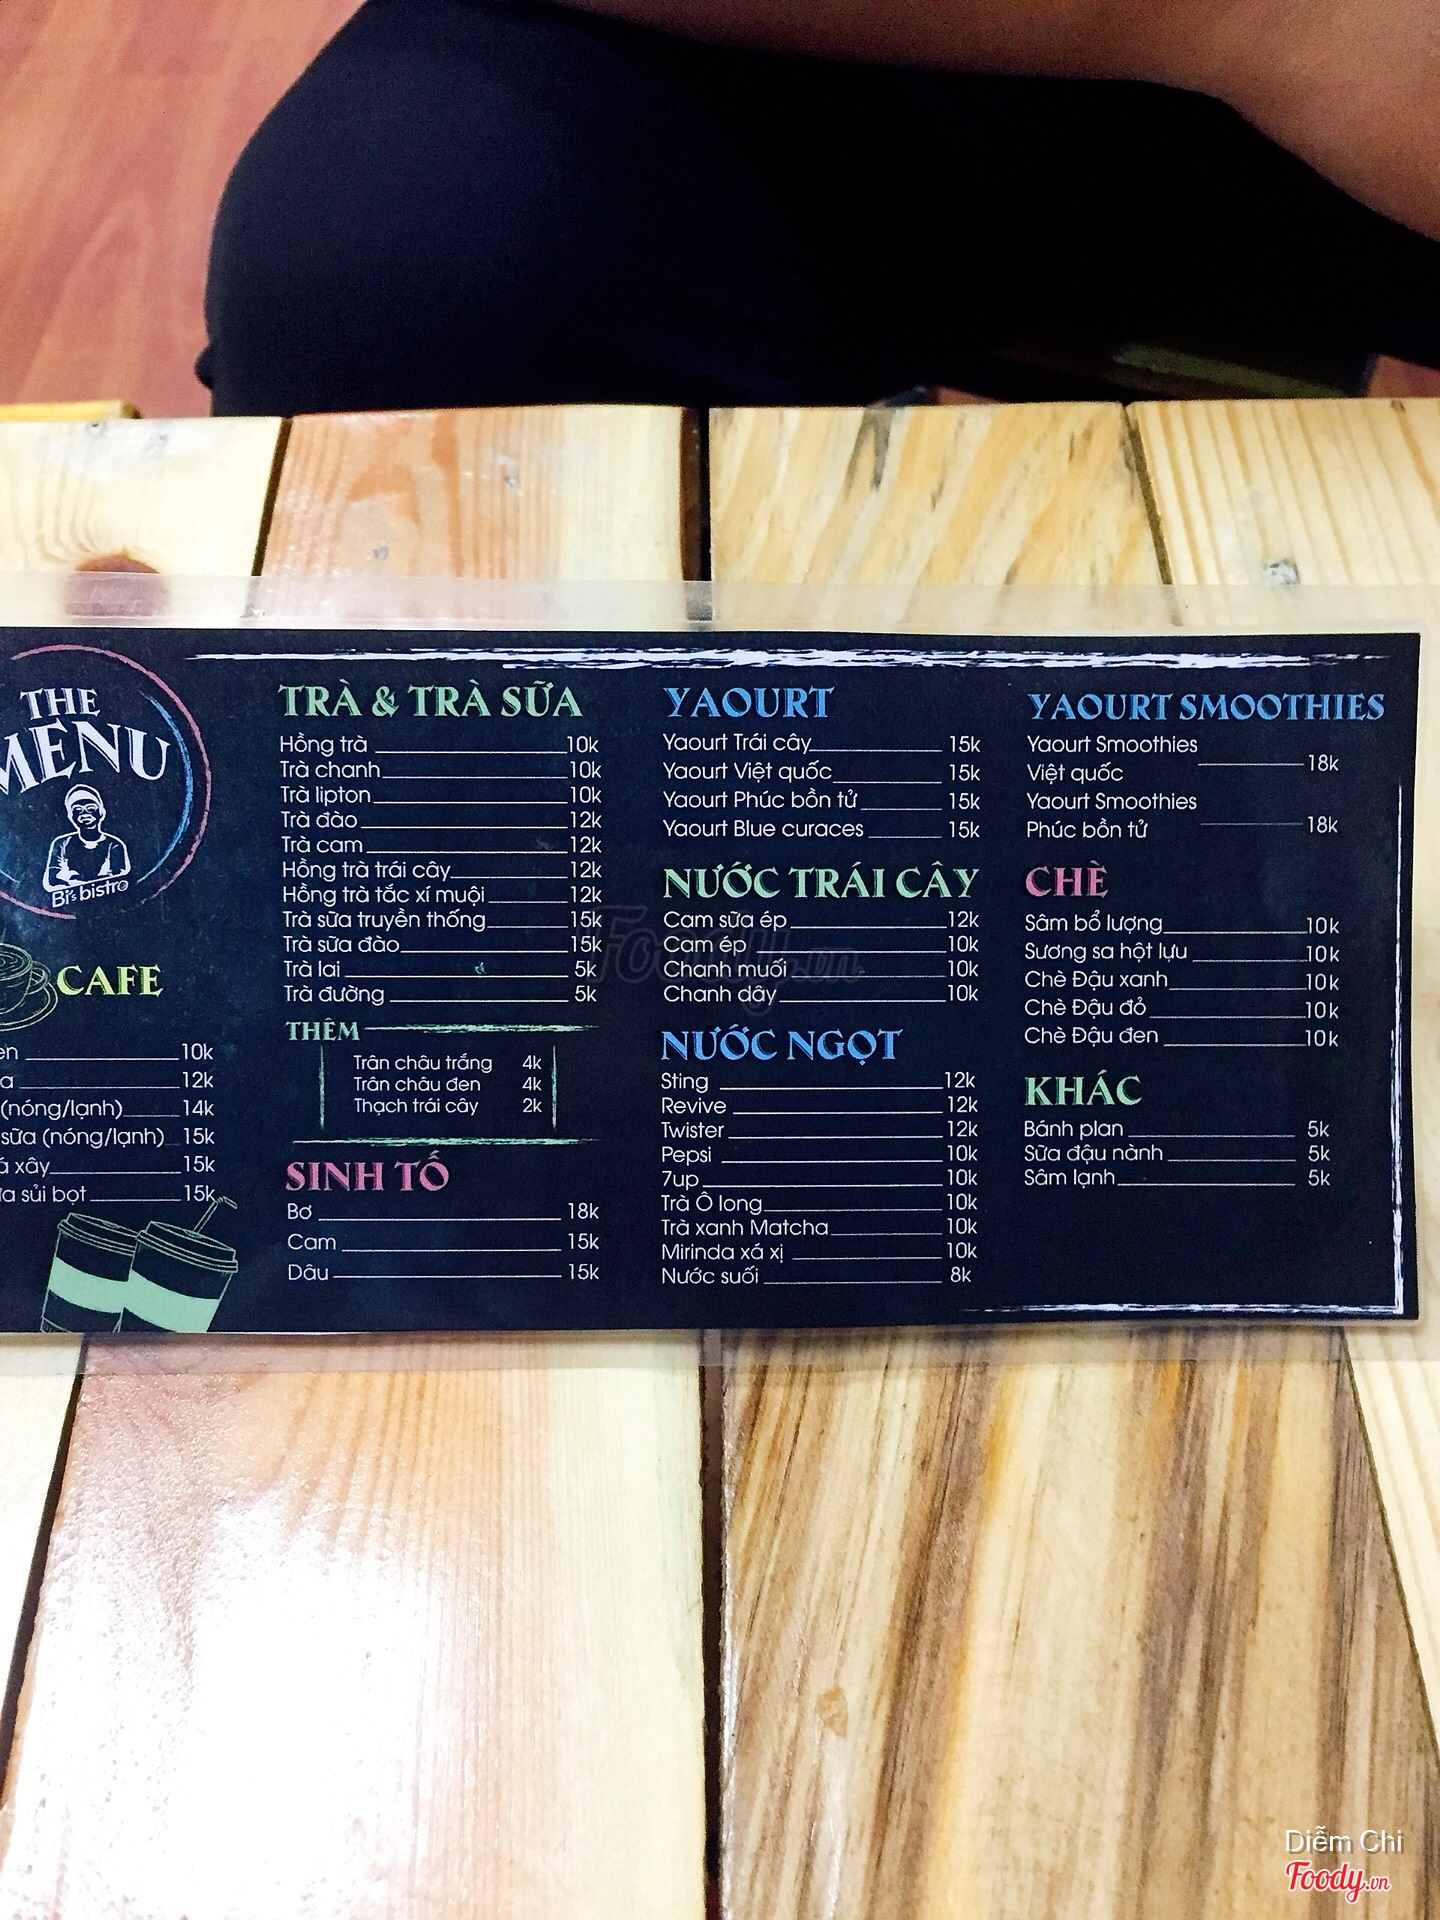 THE
MENU
Bi's bistro
CAFE
10k
12k
(nóng/lạnh) 14k
sữa (nóng/lạnh) 15k
xây 15k
sủi bọt 15k
TRÀ & TRÀ SỮA
Hồng trà 10k
Trà chanh 10k
Trà lipton 10k
Trà đào 12k
Trà cam 12k
Hồng trà trái cây 12k
Hồng trà tắc xí muội 12k
Trà sữa truyền thống 15k
Trà sữa đào 15k
Trà lai 5k
Trà đường 5k
THÊM
Trân châu trắng 4k
Trân châu đen 4k
Thạch trái cây 2k
SINH TỐ
Bơ 18k
Cam 15k
Dâu 15k
YAOURT
Yaourt Trái cây 15k
Yaourt Việt quốc 15k
Yaourt Phúc bồn tử 15k
Yaourt Blue curaces 15k
NƯỚC TRÁI CÂY
Cam sữa ép 12k
Cam ép 10k
Chanh muối 10k
Chanh dây 10k
NƯỚC NGỌT
Sting 12k
Revive 12k
Twister 12k
Pepsi 10k
7up 10k
Trà Ô long 10k
Trà xanh Matcha 10k
Mirinda xá xị 10k
Nước suối 8k
YAOURT SMOOTHIES
Yaourt Smoothies
Việt quốc 18k
Yaourt Smoothies
Phúc bồn tử 18k
CHÈ
Sâm bổ lượng 10k
Sương sa hột lựu 10k
Chè Đậu xanh 10k
Chè Đậu đỏ 10k
Chè Đậu đen 10k
KHÁC
Bánh plan 5k
Sữa đậu nành 5k
Sâm lạnh 5k
Foody.vn
Diễm Chi
Foody.vn